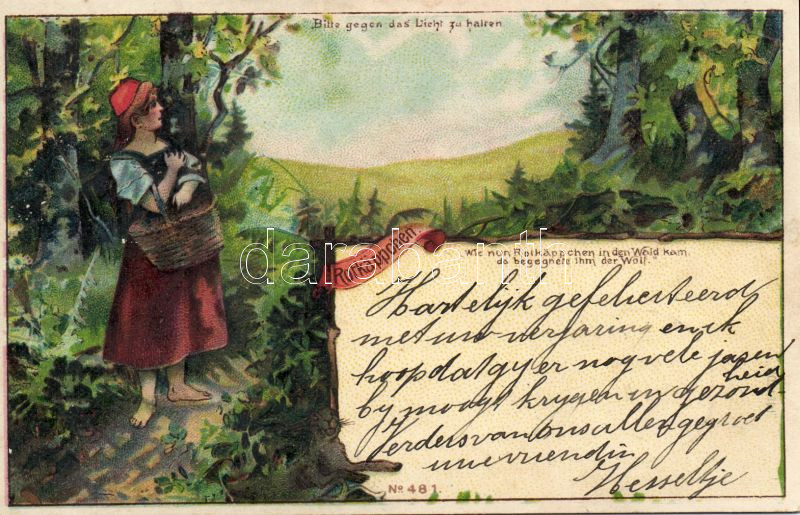 Bitte gegen das Licht zu halten
Rotkäppchen
Wie nun Rotkäppchen in den Wald kam,
da begegnete ihm der Wolf.
darabanth
Hartelijk gefeliciteerd
met uw verjaring en ik
hoop dat gy er nog vele jaren
by moogt krygen in gezond
heid
Verders van ons allen gegroet
uwe vriendin
Hesseltje
No 481